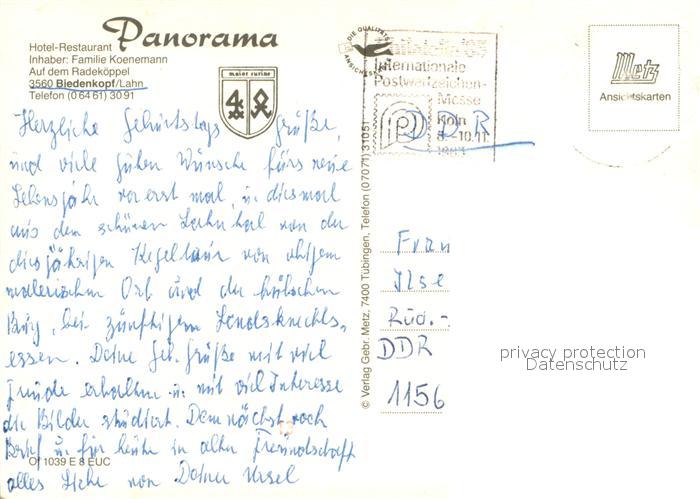 Panorama
Hotel-Restaurant
Inhaber: Familie Koenemann
Auf dem Radeköppel
3560 Biedenkopf/Lahn
Telefon (0 64 61) 30 91
Herzliche Geburtstagsgrüße,
und viele guten Wünsche fürs neue
Lebensjahr vorerst mal, u. diesmal
aus dem schönen Lahntal von der
diesjährigen Kegeltour von obigem
malerischen Ort und der hübschen
Burg, bei zünftigem Landsknechts-
essen. Deine Geb. Grüße mit viel
Freude erhalten u. mit viel Interesse
die Bilder studiert. Demnächst noch
Brief u. für heute in alter Freundschaft
alles Liebe von Deiner Ursel
Of 1039 E 8 EUC
© Verlag Gebr. Metz, 7400 Tübingen, Telefon (07071) 31051
DIE QUALITÄTS
ANSICHTSKARTE
Internationale
Postwertzeichen-
Messe
Köln
8.-10.11.
DDR
Metz
Ansichtskarten
Frau
Ilse
Rüd.-
DDR
1156
privacy protection
Datenschutz